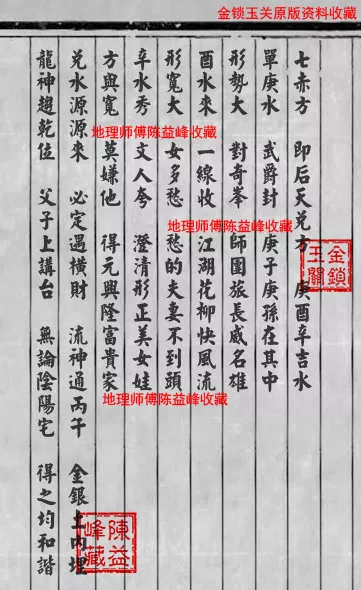 金锁玉关原版资料收藏
七赤方　即后天兑方　庚酉辛吉水
單庚水　武爵封　庚子庚孫在其中
形勢大　對奇峯　師團旅長威名雄
酉水來　一線收　江湖花柳快風流
形寬大　女多愁　愁的夫妻不到頭
辛水秀　文人夸　澄清形正美女娃
方與寬　莫嫌他　得元興隆富貴家
兑水源源來　必定遇横財　流神通丙午　金銀土内埋
龍神趨乾位　父子上講台　無論陰陽宅　得之均和諧
地理师傅陈益峰收藏
地理师傅陈益峰收藏
地理师傅陈益峰收藏
金鎖玉關
陳益峰藏